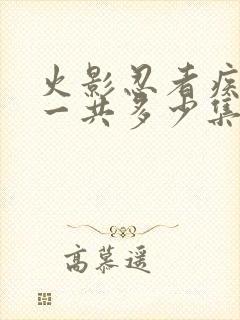 火影忍者疾
一共多少集
高慕遥